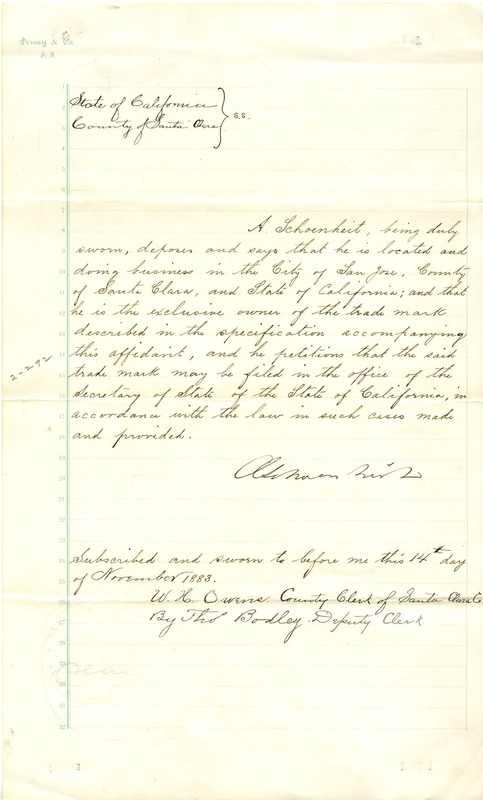 Dewey & Co.
S. F.
State of California
County of Santa Clara } S.S.
A. Schoenheit, being duly
sworn, deposes and says that he is located and
doing business in the City of San Jose, County
of Santa Clara, and State of California; and that
he is the exclusive owner of the trade mark
described in the specification accompanying
this affidavit, and he petitions that the said
trade mark may be filed in the office of the
Secretary of State of the State of California, in
accordance with the law in such cases made
and provided.
A Schoenheit
Subscribed and sworn to before me this 14th day
of November 1883.
W. H. Owens. County Clerk of Santa Clara Co
By Tho Bodley Deputy Clerk
Seal
1
2
3
4
5
6
7
8
9
10
11
12
13
14
15
16
17
18
19
20
21
22
23
24
25
26
27
28
29
30
31
32